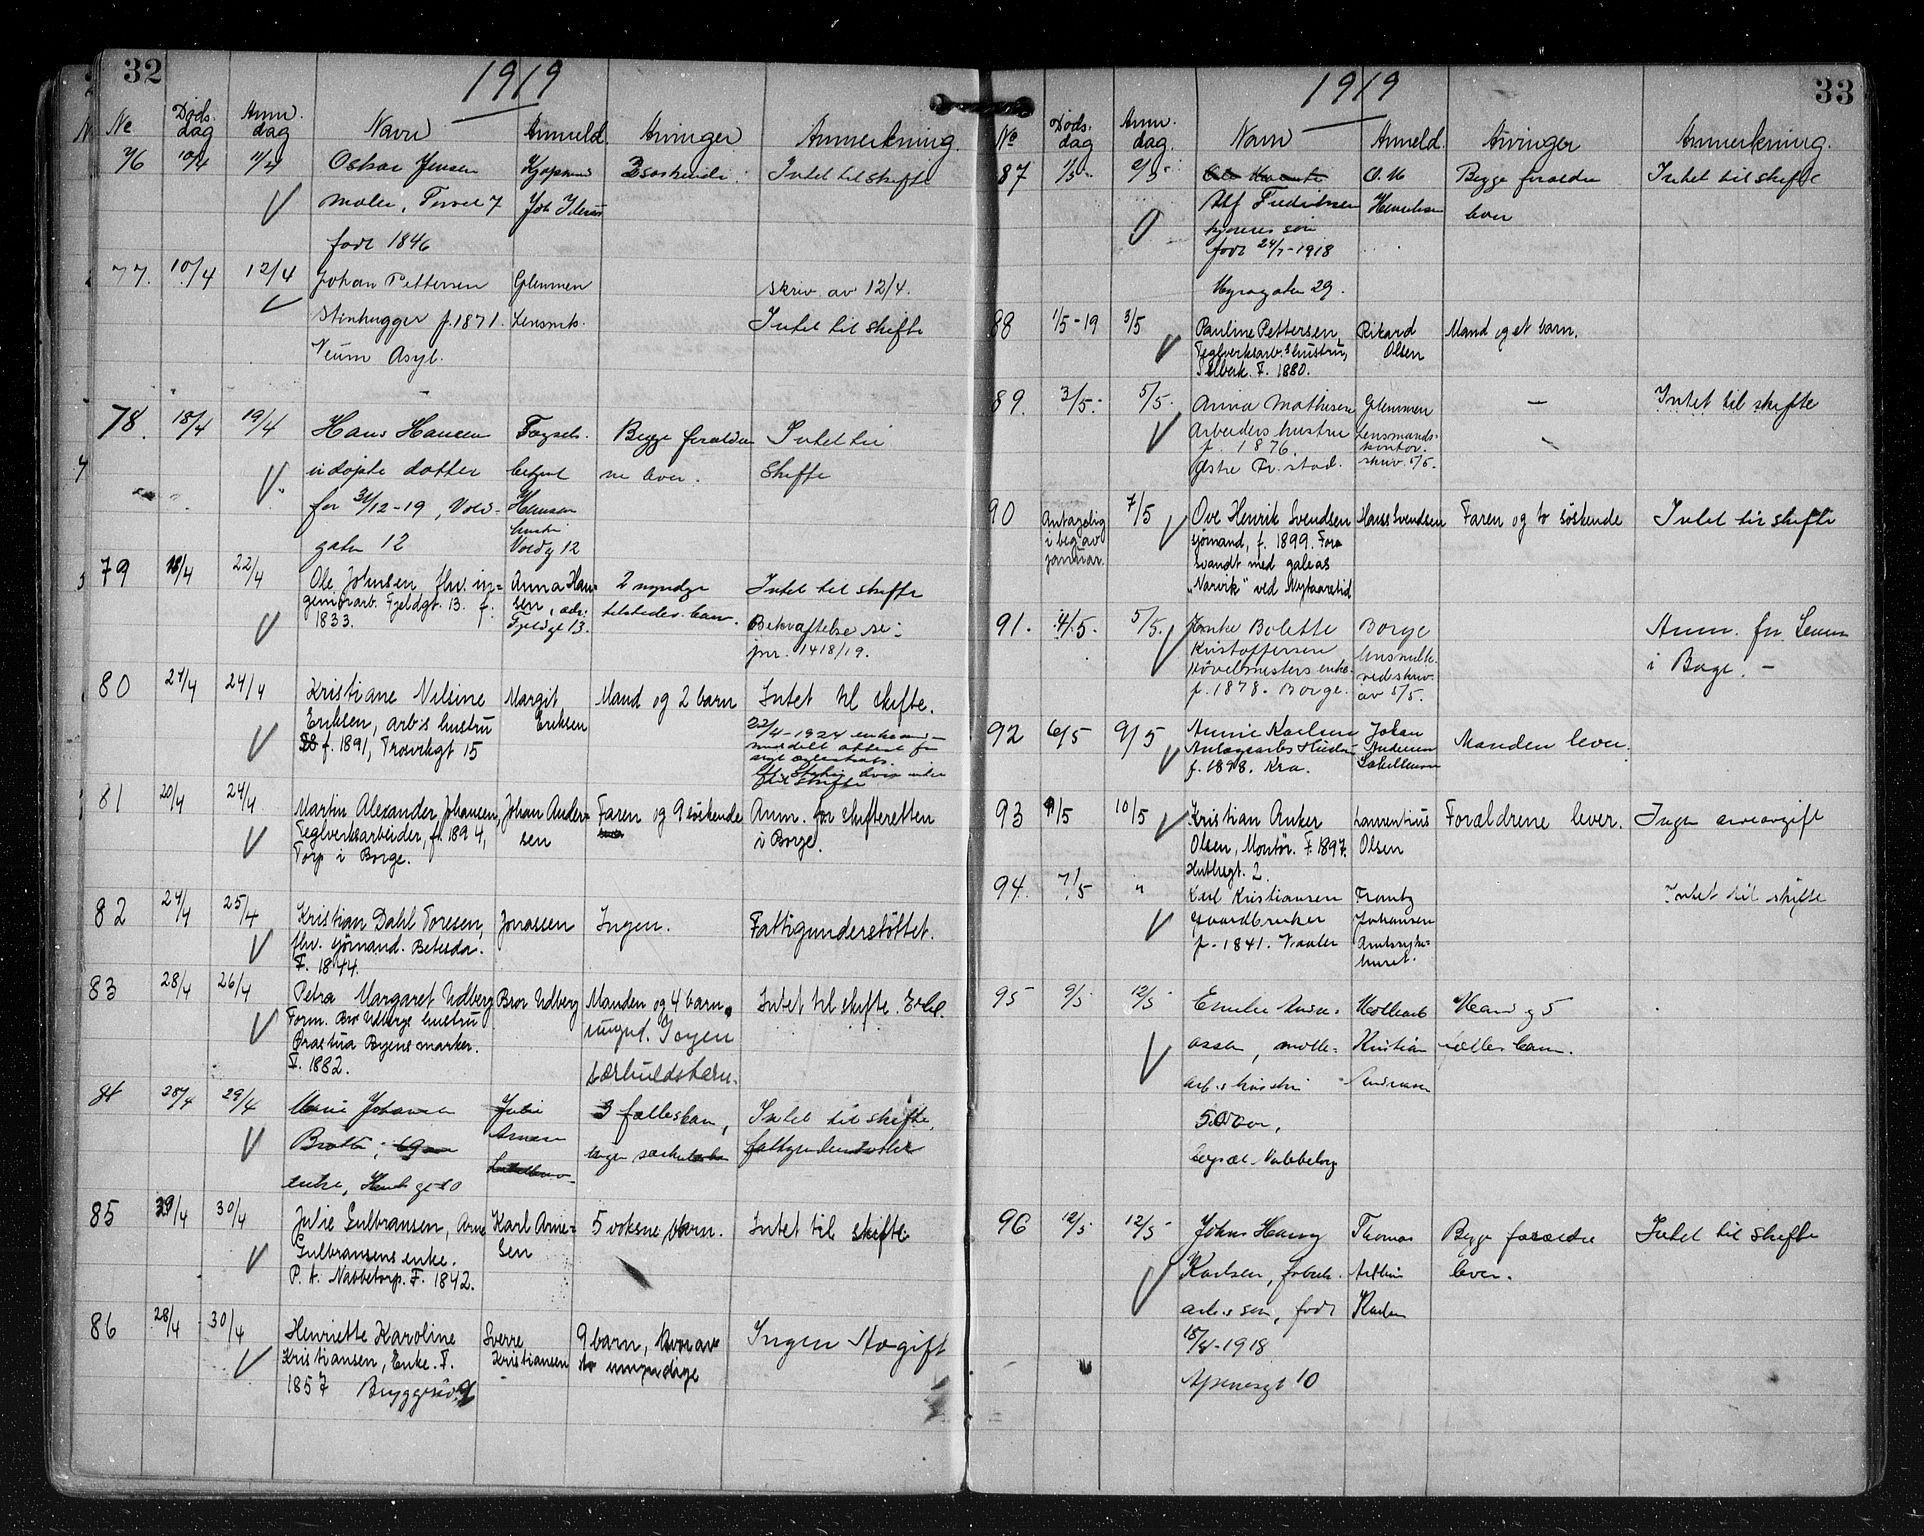 32
1919
No Døds. dag Anm. dag Navn Anmeld. Arvinger Anmerkning.
76 10/4 11/4 Oskar Jensen Kjøpmand 3 søskende. Intet til skifte
maler, Torvet 7 Joh
født 1846
77. 10/4 12/4 Johan Pettersen Glemmen skriv. av 12/4.
Stenhugger f. 1871. Lensmk. Intet til skifte
Veum Asyl.
78. 18/4 19/4 Hans Hansen Fogsels. Begge foreldre Intet til
udøpte datter betjent ne lever. Skifte
før 31/12-19, Vold- Hansen
gaten 12 Voldg 12
79 18/4 22/4 Ole Johnsen fhv. in- Anna Han- 2 myndge Intet til skifte
geniørarb. Fjeldgt. 13. f. sen, adr. tilstedev. barn. Bekræftelse se
1833. Fjeldgt 13. jnr. 1418/19.
80 24/4 24/4 Kristiane Nilsine Margit Mand og 2 barn Intet til skifte.
Eriksen, arb's hustru Eriksen 22/4-1924
f. 1891, Trosvikgt 15 til skifte
81 20/4 24/4 Martin Alexander Johansen, Johan Ander- Faren og 9 søskende Anm. for skifteretten
Teglverksarbeider, f. 1894, sen i Borge.
Torp i Borge.
82 24/4 25/4 Kristian Dahl Toresen, Jonassen Ingen. Fattigunderstøttet.
fhv. sjömand. Betesda.
F. 1844.
83 28/4 26/4 Petra Margaret Udberg Bror Udberg Manden og 4 barn, Intet til skifte.
Form. Bror Udbergs hustru umynd. Ingen
Grastua Byens marker. særkuldsbarn.
F. 1882.
84 28/4 29/4 Marie Johanne Julie 3 fællesbarn, Intet til skifte,
Bratli, Arnesen ingen særkulsbarn fattigunderstøttet
enke, gt 10
85 29/4 30/4 Julie Gulbransen, Arne Karl Arne- 5 voksne barn. Intet til skifte
Gulbransens enke. sen
P. t. Nabbetorp. F. 1842.
86 28/4 30/4 Henriette Karoline Sverre 9 barn, hvorav Ingen Avgift
Kristiansen, Enke. F. Kristiansen to umyndige
1857
33
1919
No Døds. dag Anm. dag. Navn Anmeld. Arvinger Anmerkning.
87 1/5 2/5 O. M Begge foreldre Intet til skifte
Alf Fredriksen Henriksen lever
søn
født 24/7-1918
Myragaten 29.
88 1/5-19 3/5 Pauline Pettersen, Rikard Mand og et barn.
Teglverksarb.s hustru, Olsen
Selbak. F. 1880.
89. 3/5. 5/5. Anna Mathisen Glemmen — Intet til skifte
Arbeiders hustru Lensmands-
f. 1876. kontor.
østre Fr.stad. skriv. 5/5.
90 Antagelig 7/5 Ove Henrik Svendsen Hans Svendsen Faren og to søskende Intet til skifte
i beg. av sjömand, f. 1899. For-
januar. svandt med galeas
"Narvik" ved Nytaarstid
91. 4/5. 5/5. Bolette Borge Anm. for Lensm
Kristoffersen lensmk. i Borge. —
Hövelmesters enke. ved skriv.
f. 1878. Borge. av 5/5.
92 6/5 9/5 Annie Karlsen Johan Manden lever.
Andersen
f. 1898. Kra.
93 9/5 10/5 Kristian Anker Laurentius Forældrene lever. Ingen arveavgift
Olsen, Montör. F. 1897. Olsen
94. 7/5 " Karl Kristiansen Frantz Intet til skifte
Gaardbruker Johansen
f. 1841. Vaaler Amtssyke-
huset.
95 9/5 12/5 Emilie Andre- Mand og 5
assen, mölle- Kristian fælles barn.
arb.s hustru Andreassen
50 aar,
96 12/5 12/5 Johns Harry Thomas Begge forældre Intet til skifte
Karlsen, fabrik. Arthur lever.
arb.s søn, født Karlsen
15/8-1918
Apenesgt 10